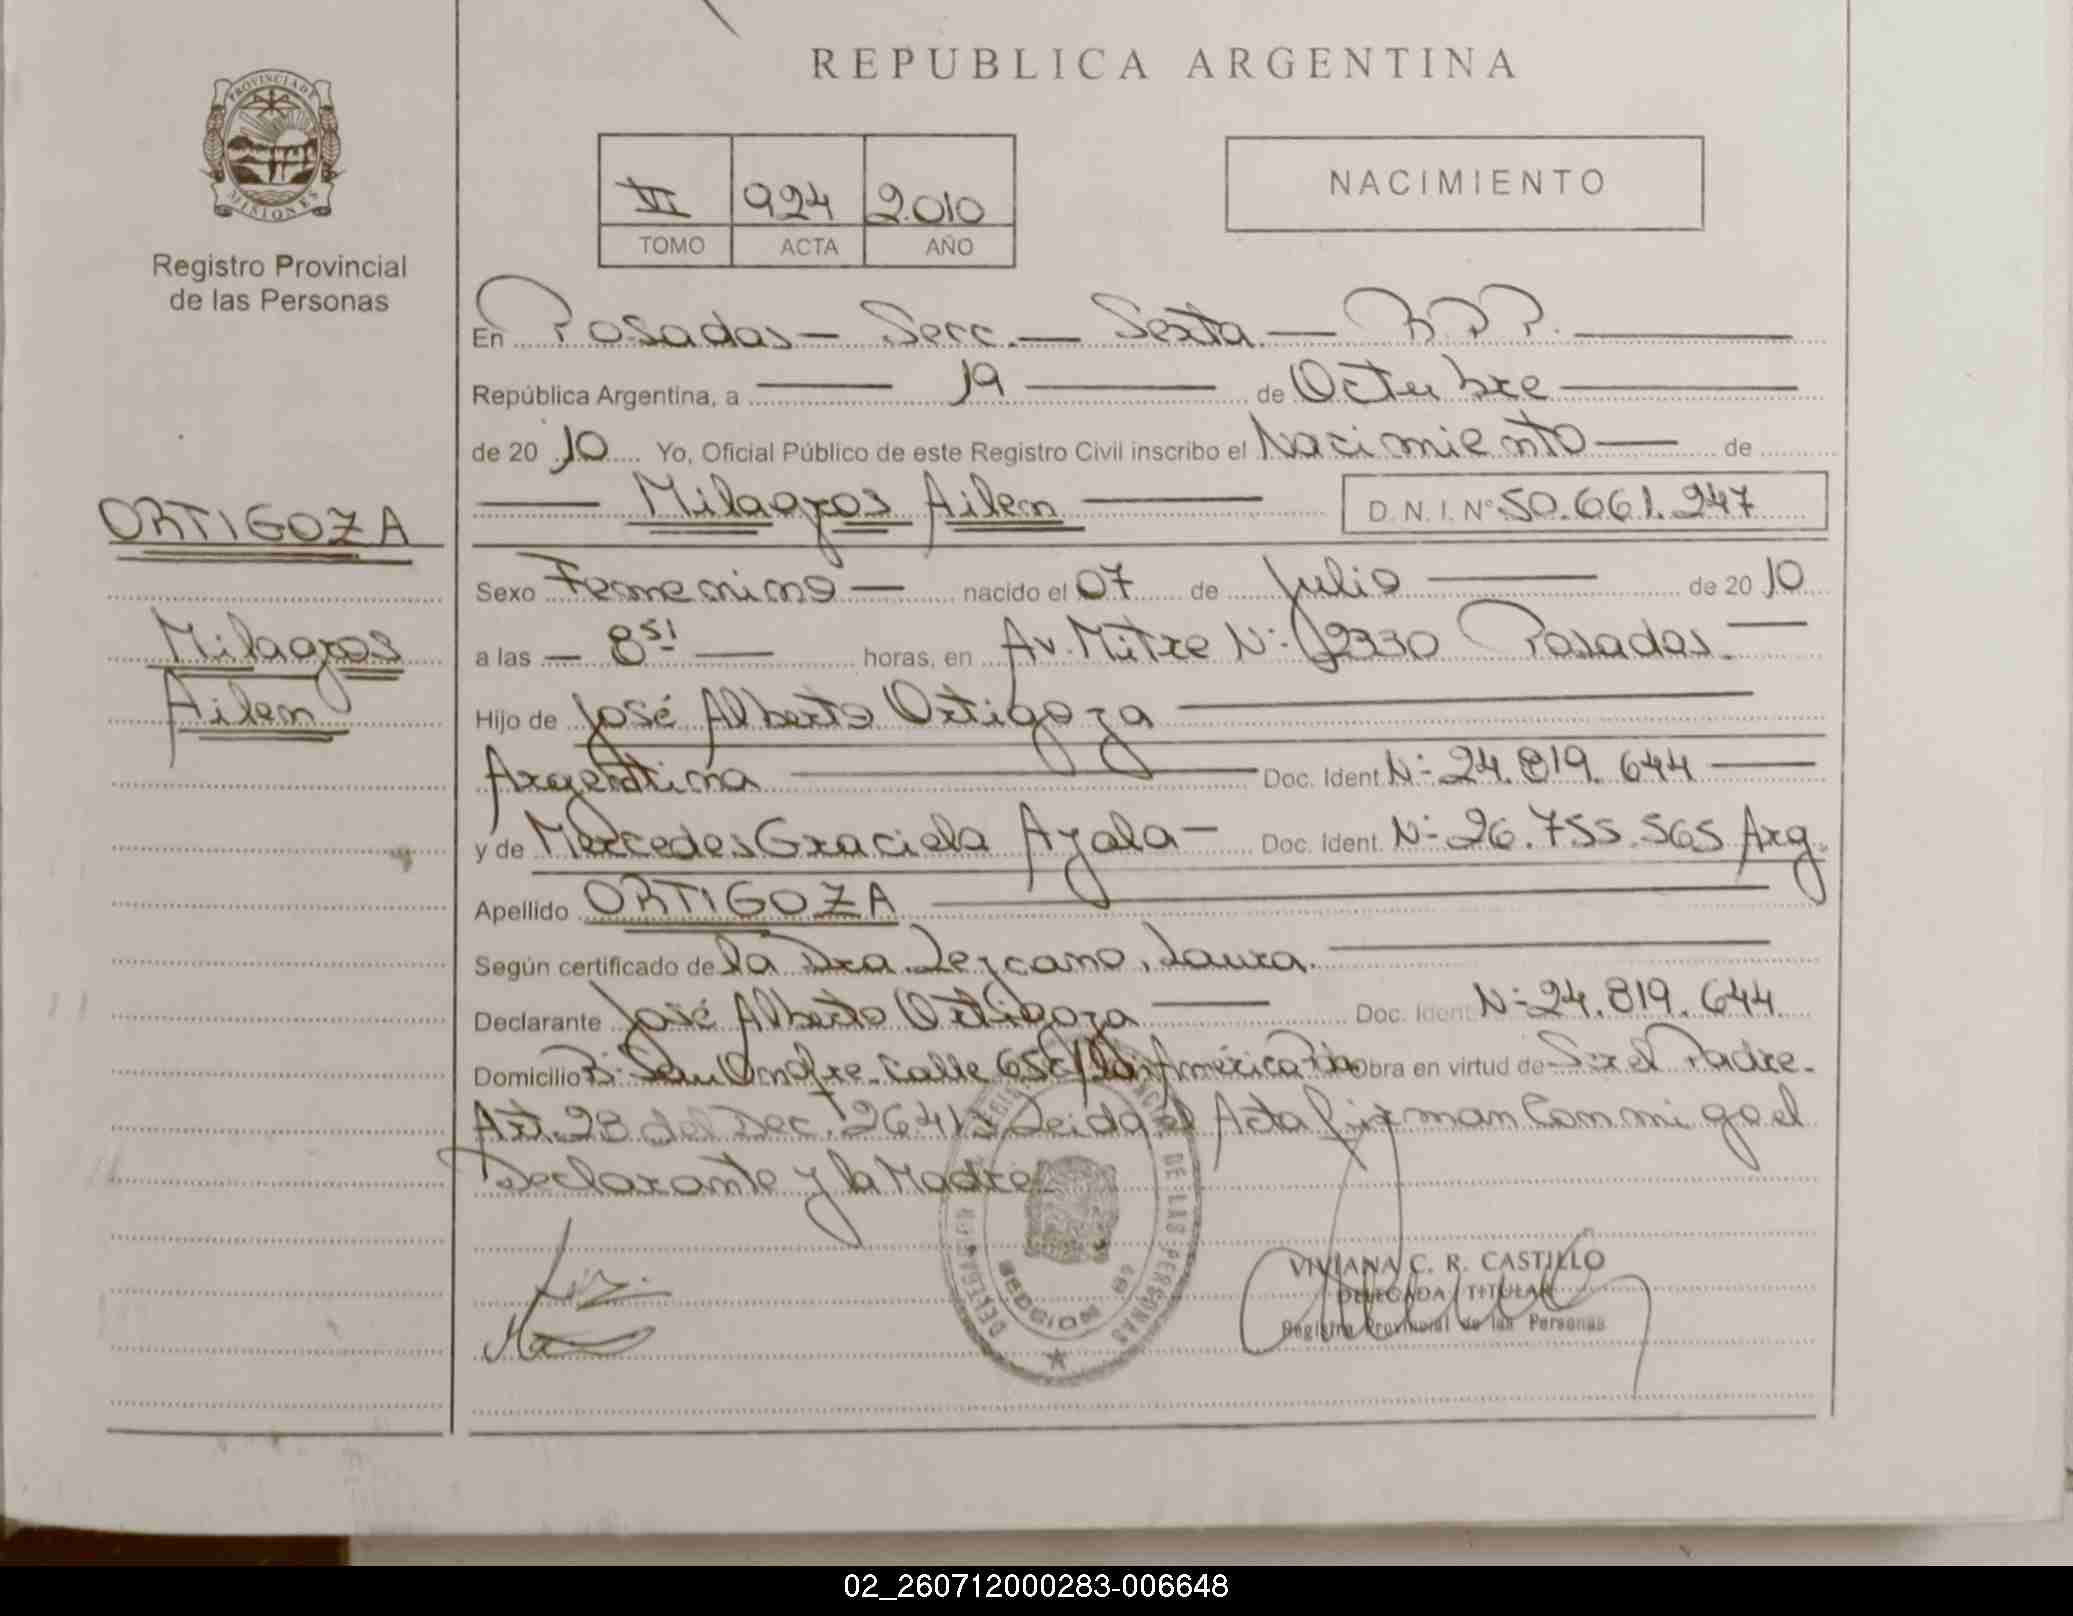 REPUBLICA ARGENTINA
PROVINCIA DE
MISIONES
Registro Provincial
de las Personas
VI 924 2010
TOMO ACTA AÑO
NACIMIENTO
En Posadas — Secc. — Sexta. — R.P.P.
República Argentina, a 19 de Octubre
de 2010 Yo, Oficial Público de este Registro Civil inscribo el Nacimiento de
Milagros Ailen D.N.I. Nº 50.661.247
ORTIGOZA
Milagros
Ailen
Sexo Femenino nacido el 07 de Julio de 2010
a las 8 51 horas, en Av. Mitre Nº 2330 Posadas.
Hijo de José Alberto Ortigoza
Argentina Doc. Ident. Nº 24.819.644
y de Mercedes Graciela Ayala Doc. Ident. Nº 26.755.565 Arg.
Apellido ORTIGOZA
Según certificado de la Dra. Lezcano, Laura.
Declarante José Alberto Ortigoza Doc. Ident. Nº 24.819.644
Domicilio Bº San Onofre. Calle 65 América Obra en virtud de Ser el Padre.
Art. 28 del Dec. Leida el Acta firman Conmigo el
Declarante y la Madre.
DE LAS PERSONAS
SECCION 6ª
VIVIANA C. R. CASTILLO
DELEGADA TITULAR
Registro Provincial de las Personas
02_260712000283-006648